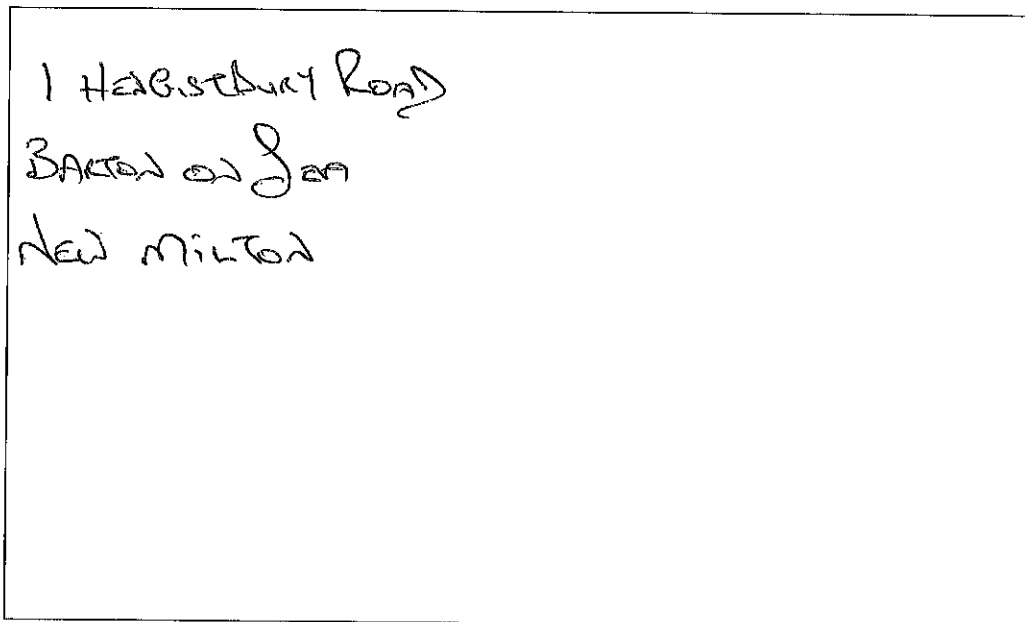 1 HENGISTBURY ROAD
BARTON ON SEA
NEW MILTON